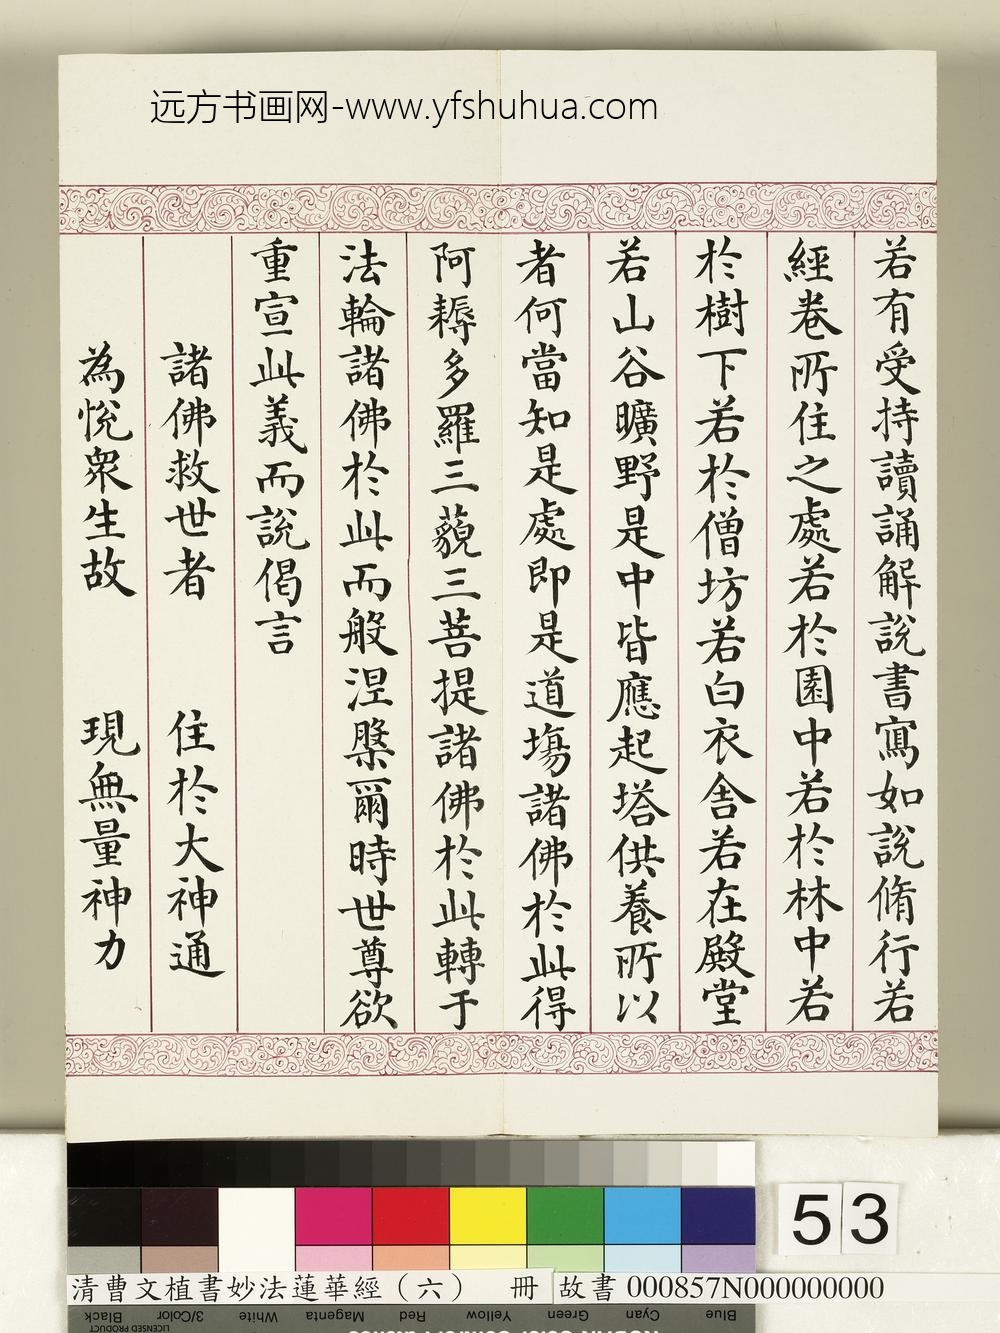 远方书画网-www.yfshuhua.com
若有受持讀誦解說書寫如說脩行若
經卷所住之處若於園中若於林中若
於樹下若於僧坊若白衣舍若在殿堂
若山谷曠野是中皆應起塔供養所以
者何當知是處即是道場諸佛於此得
阿耨多羅三藐三菩提諸佛於此轉于
法輪諸佛於此而般涅槃爾時世尊欲
重宣此義而說偈言
諸佛救世者 住於大神通
為悅衆生故 現無量神力
53
清曹文植書妙法蓮華經（六） 冊 故書 000857N000000000
Black 3/Color White Magenta Red Yellow Green Cyan Blue
LICENSED PRODUCT